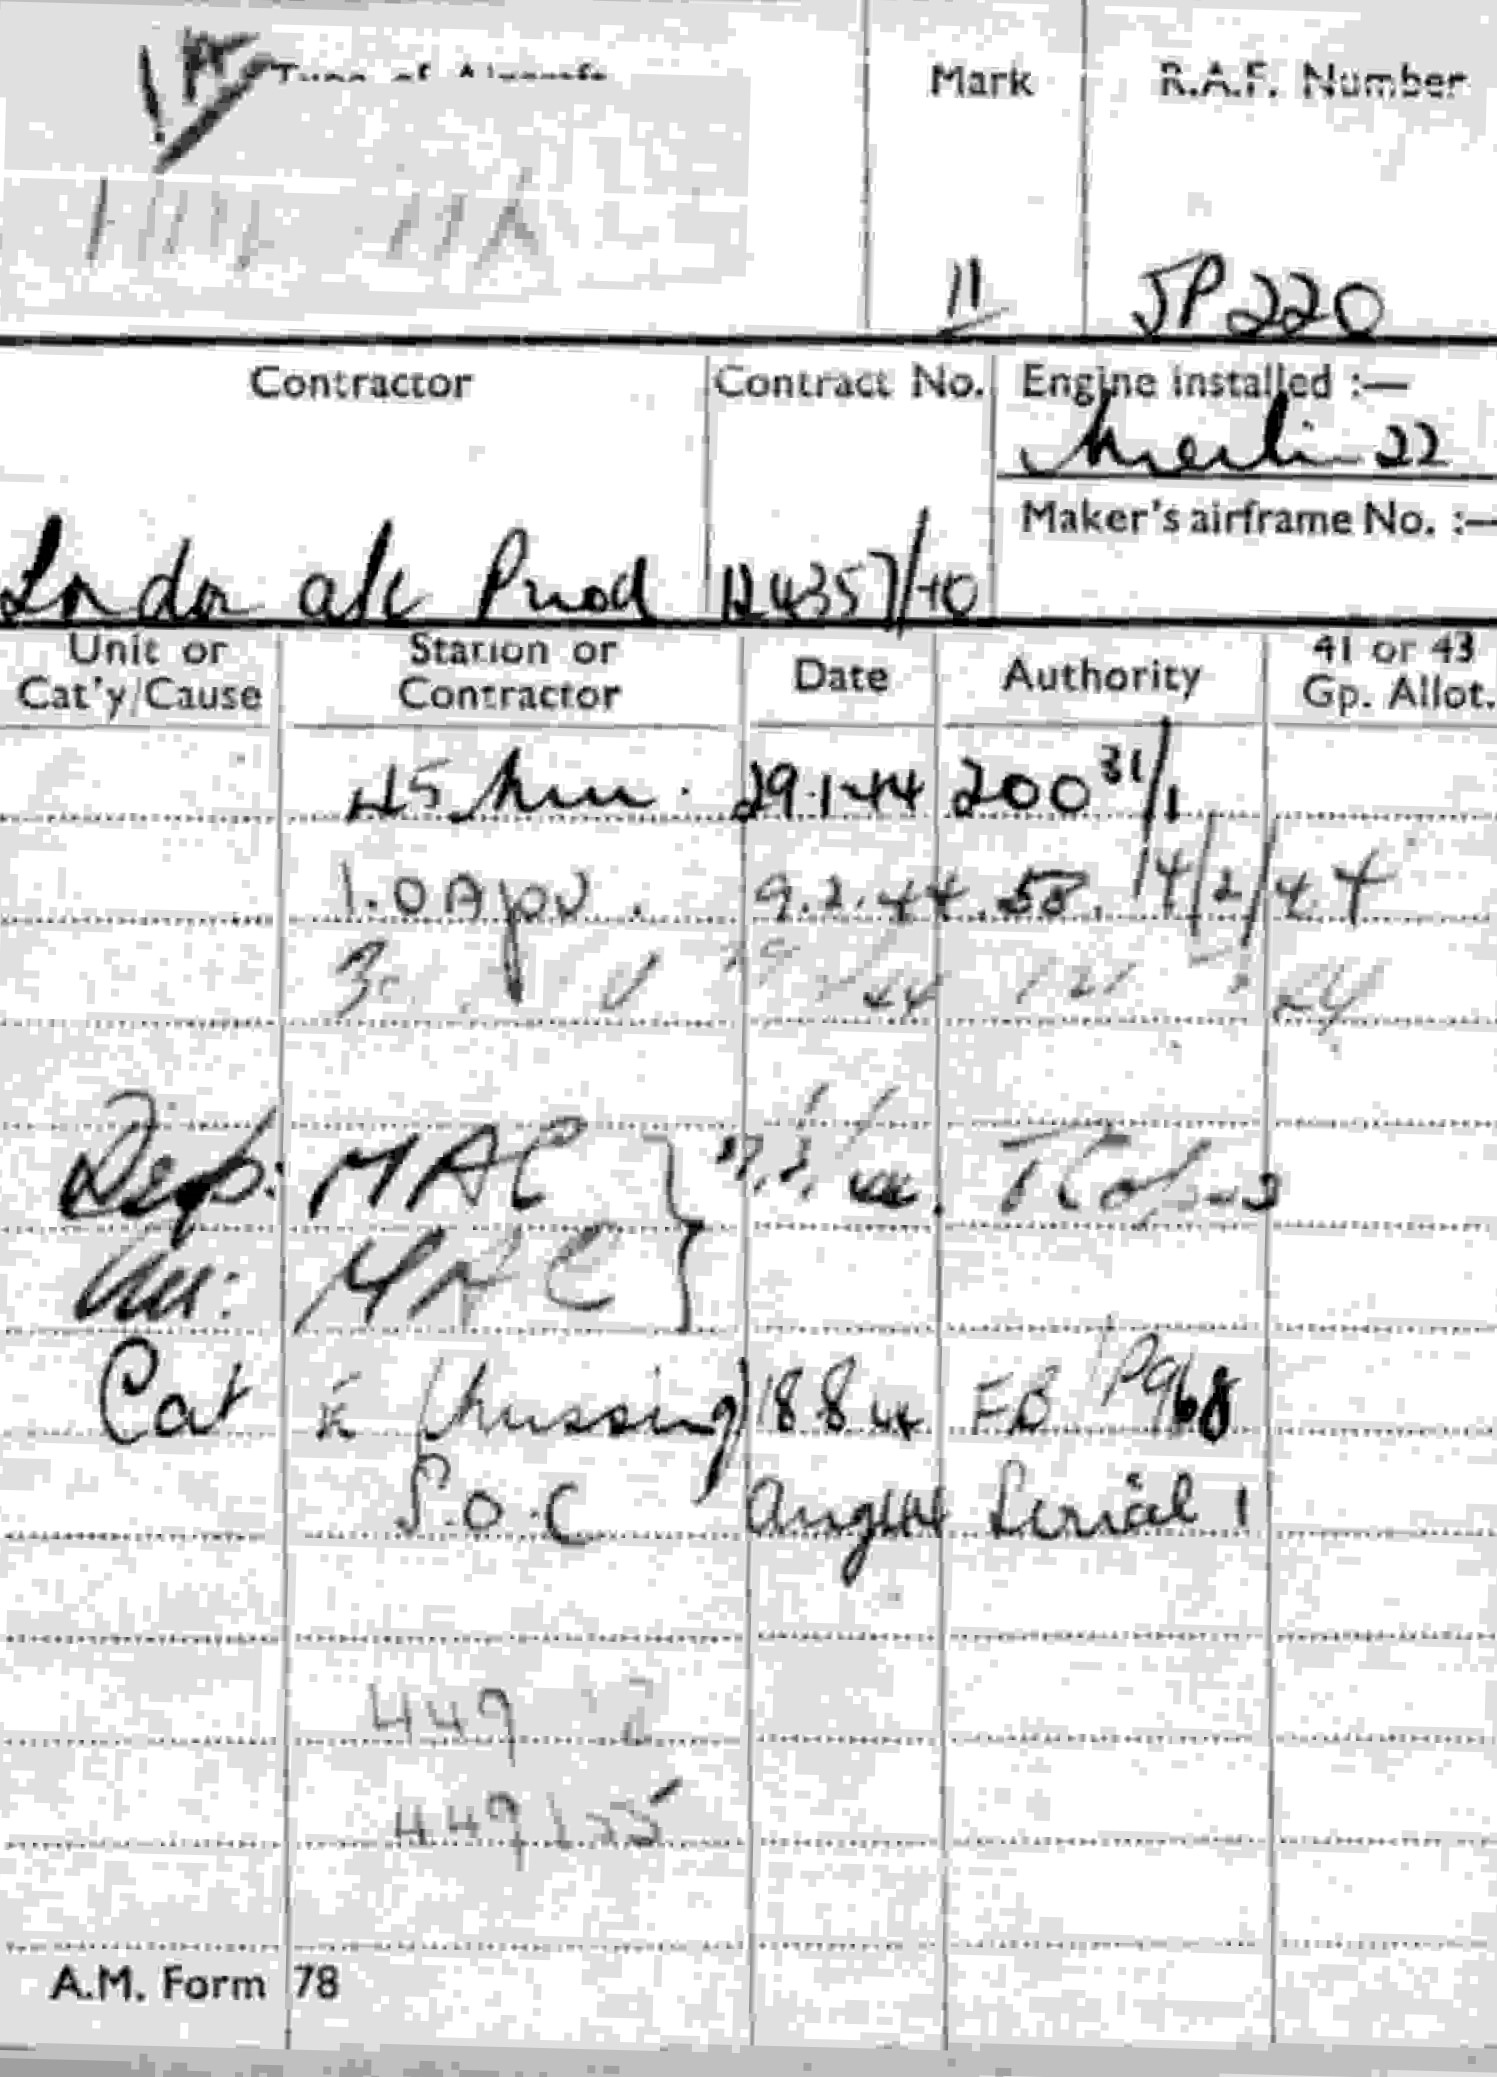 Type of Aircraft Mark R.A.F. Number
11 JP220
Contractor Contract No. Engine installed :—
Merlin 22
Maker's airframe No. :—
Lndn a/c Prod 124357/40
Unit or Cat'y/Cause Station or Contractor Date Authority 41 or 43 Gp. Allot.
45 mu. 29.1.44 200 31/1
1.OAPU. 9.2.44 58. 14/2/44
3 U 44 44
Disp: MAC
MAC
Cat E (missing) 18 8 44 FB 968
S.O.C Aug 44 Serial 1
449
449
A.M. Form 78